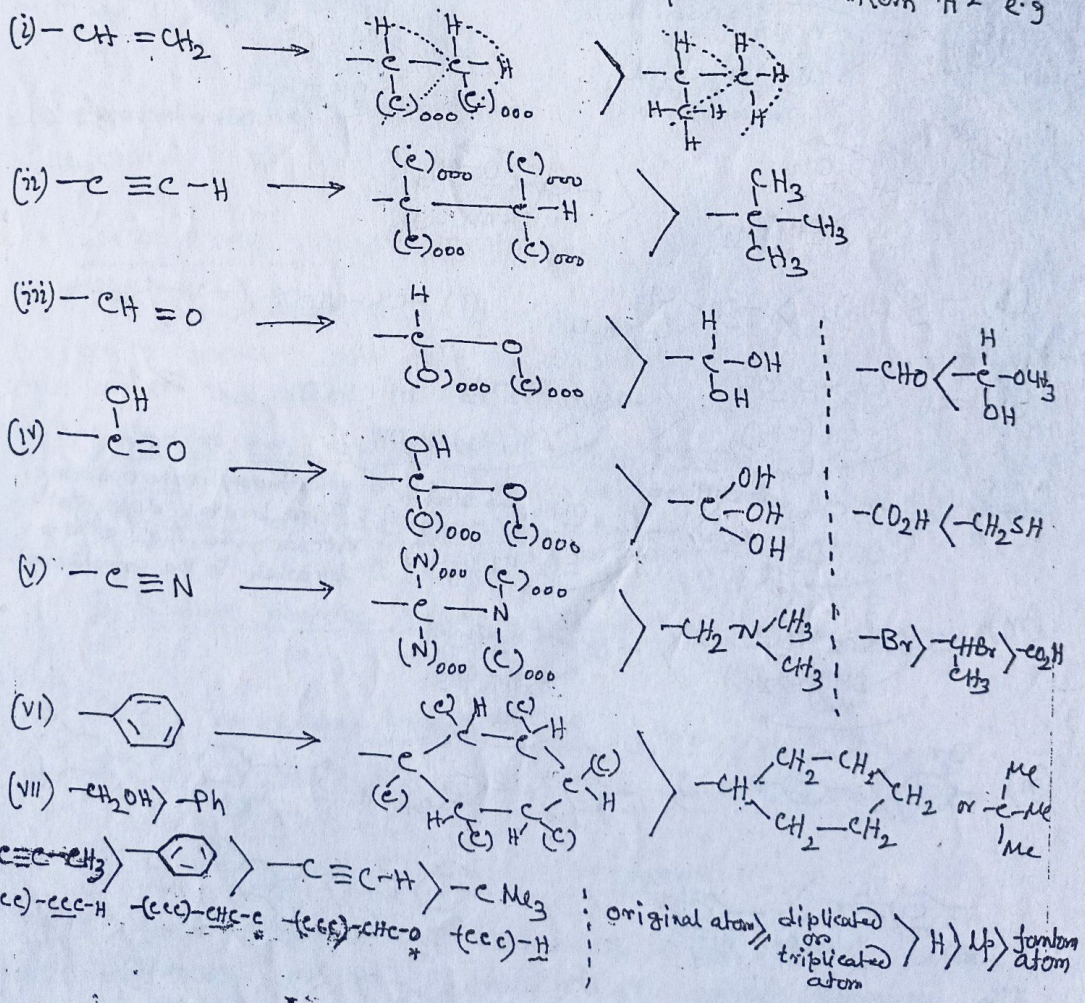 e.g
(i) - CH = CH2 ⟶ - C - C - H H H (C)000 (C)000 > - C - C - H H H H - C - H H H
(ii) - C ≡ C - H ⟶ (C)000 (C)000 - C - C - H (C)000 (C)000 > CH3 - C - CH3 CH3
(iii) - CH = O ⟶ H - C - O (O)000 (C)000 > H - C - OH OH - CHO < H - C - OCH3 OH
(iv) OH - C = O ⟶ OH - C - O (O)000 (C)000 > - C OH - OH OH - CO2H < - CH2SH
(v) - C ≡ N ⟶ (N)000 (C)000 - C - N (N)000 (C)000 > - CH2 - N CH3 CH3 - Br > - CHBr CH3 > - CO2H
(VI) ⟶ (C) H (C) - C C C H (C) (C) C H H - C C (C) H (C) > - CH CH2 - CH2 CH2 CH2 - CH2 or - C - Me Me Me
(VII) - CH2OH > - Ph
C≡C - CH3 > > - C ≡ C - H > - C Me3
CC) - CCC - H - (CCC) - CHC - C * - (CCC) - CHC - O * - (CCC) - H
original atom ≥ diplicated or triplicated atom > H > lp > fantom atom